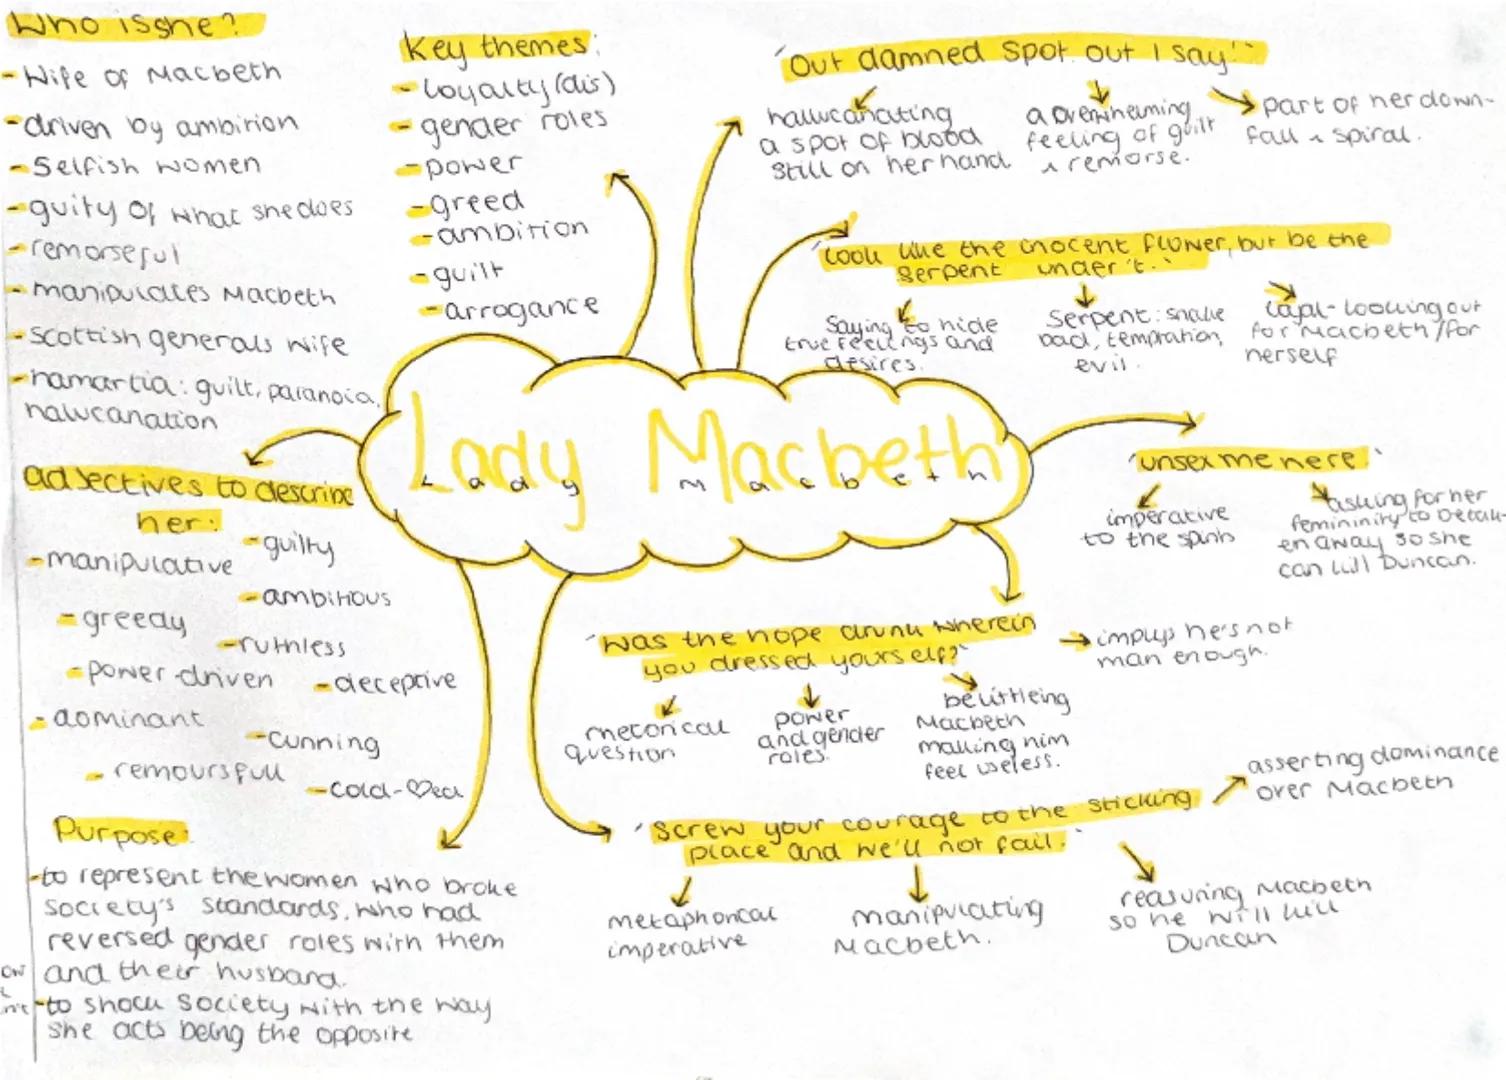 Who is she?
- Wife of Macbeth
- driven by ambition
- Selfish women
- guity of what she does
- remorseful
- manipulates Macbeth
- Scottish generals wife
- hamartia: guilt, paranoia,
hallucanation
Key themes:
- Loyalty (dis)
- gender roles
- power
- greed
- ambition
- guilt
- arrogance
'Out damned spot. out I say!'
hallucanating
a spot of blood
still on her hand
a overwhelming
feeling of guilt
& remorse.
part of her down-
fall & spiral.
'Look like the inocent flower, but be the
serpent under 't.'
Saying to hide
true feelings and
desires.
Serpent: snake
bad, temptation,
evil.
loyal - looking out
for Macbeth / for
herself
Lady Macbeth
Lady Macbeth
'unsex me here.'
imperative
to the spirits
asking for her
femininity to be tak-
en away so she
can kill Duncan.
adjectives to describe
her:
- manipulative
- guilty
- ambitious
- greedy
- ruthless
- power-driven
- deceptive
- dominant
- cunning
- remoursfull
- cold-♡ed
'Was the hope drunk wherein
you dressed yourself?'
implys he's not
man enough.
rhetorical
question
power
and gender
roles.
belittleing
Macbeth
making him
feel useless.
'Screw your courage to the sticking
place and we'll not fail.'
asserting dominance
over Macbeth
metaphorical
imperative
manipulating
Macbeth.
reasuring Macbeth
so he will kill
Duncan
Purpose:
- to represent the women who broke
society's standards, who had
reversed gender roles with them
and their husband.
- to shock society with the way
she acts being the opposite